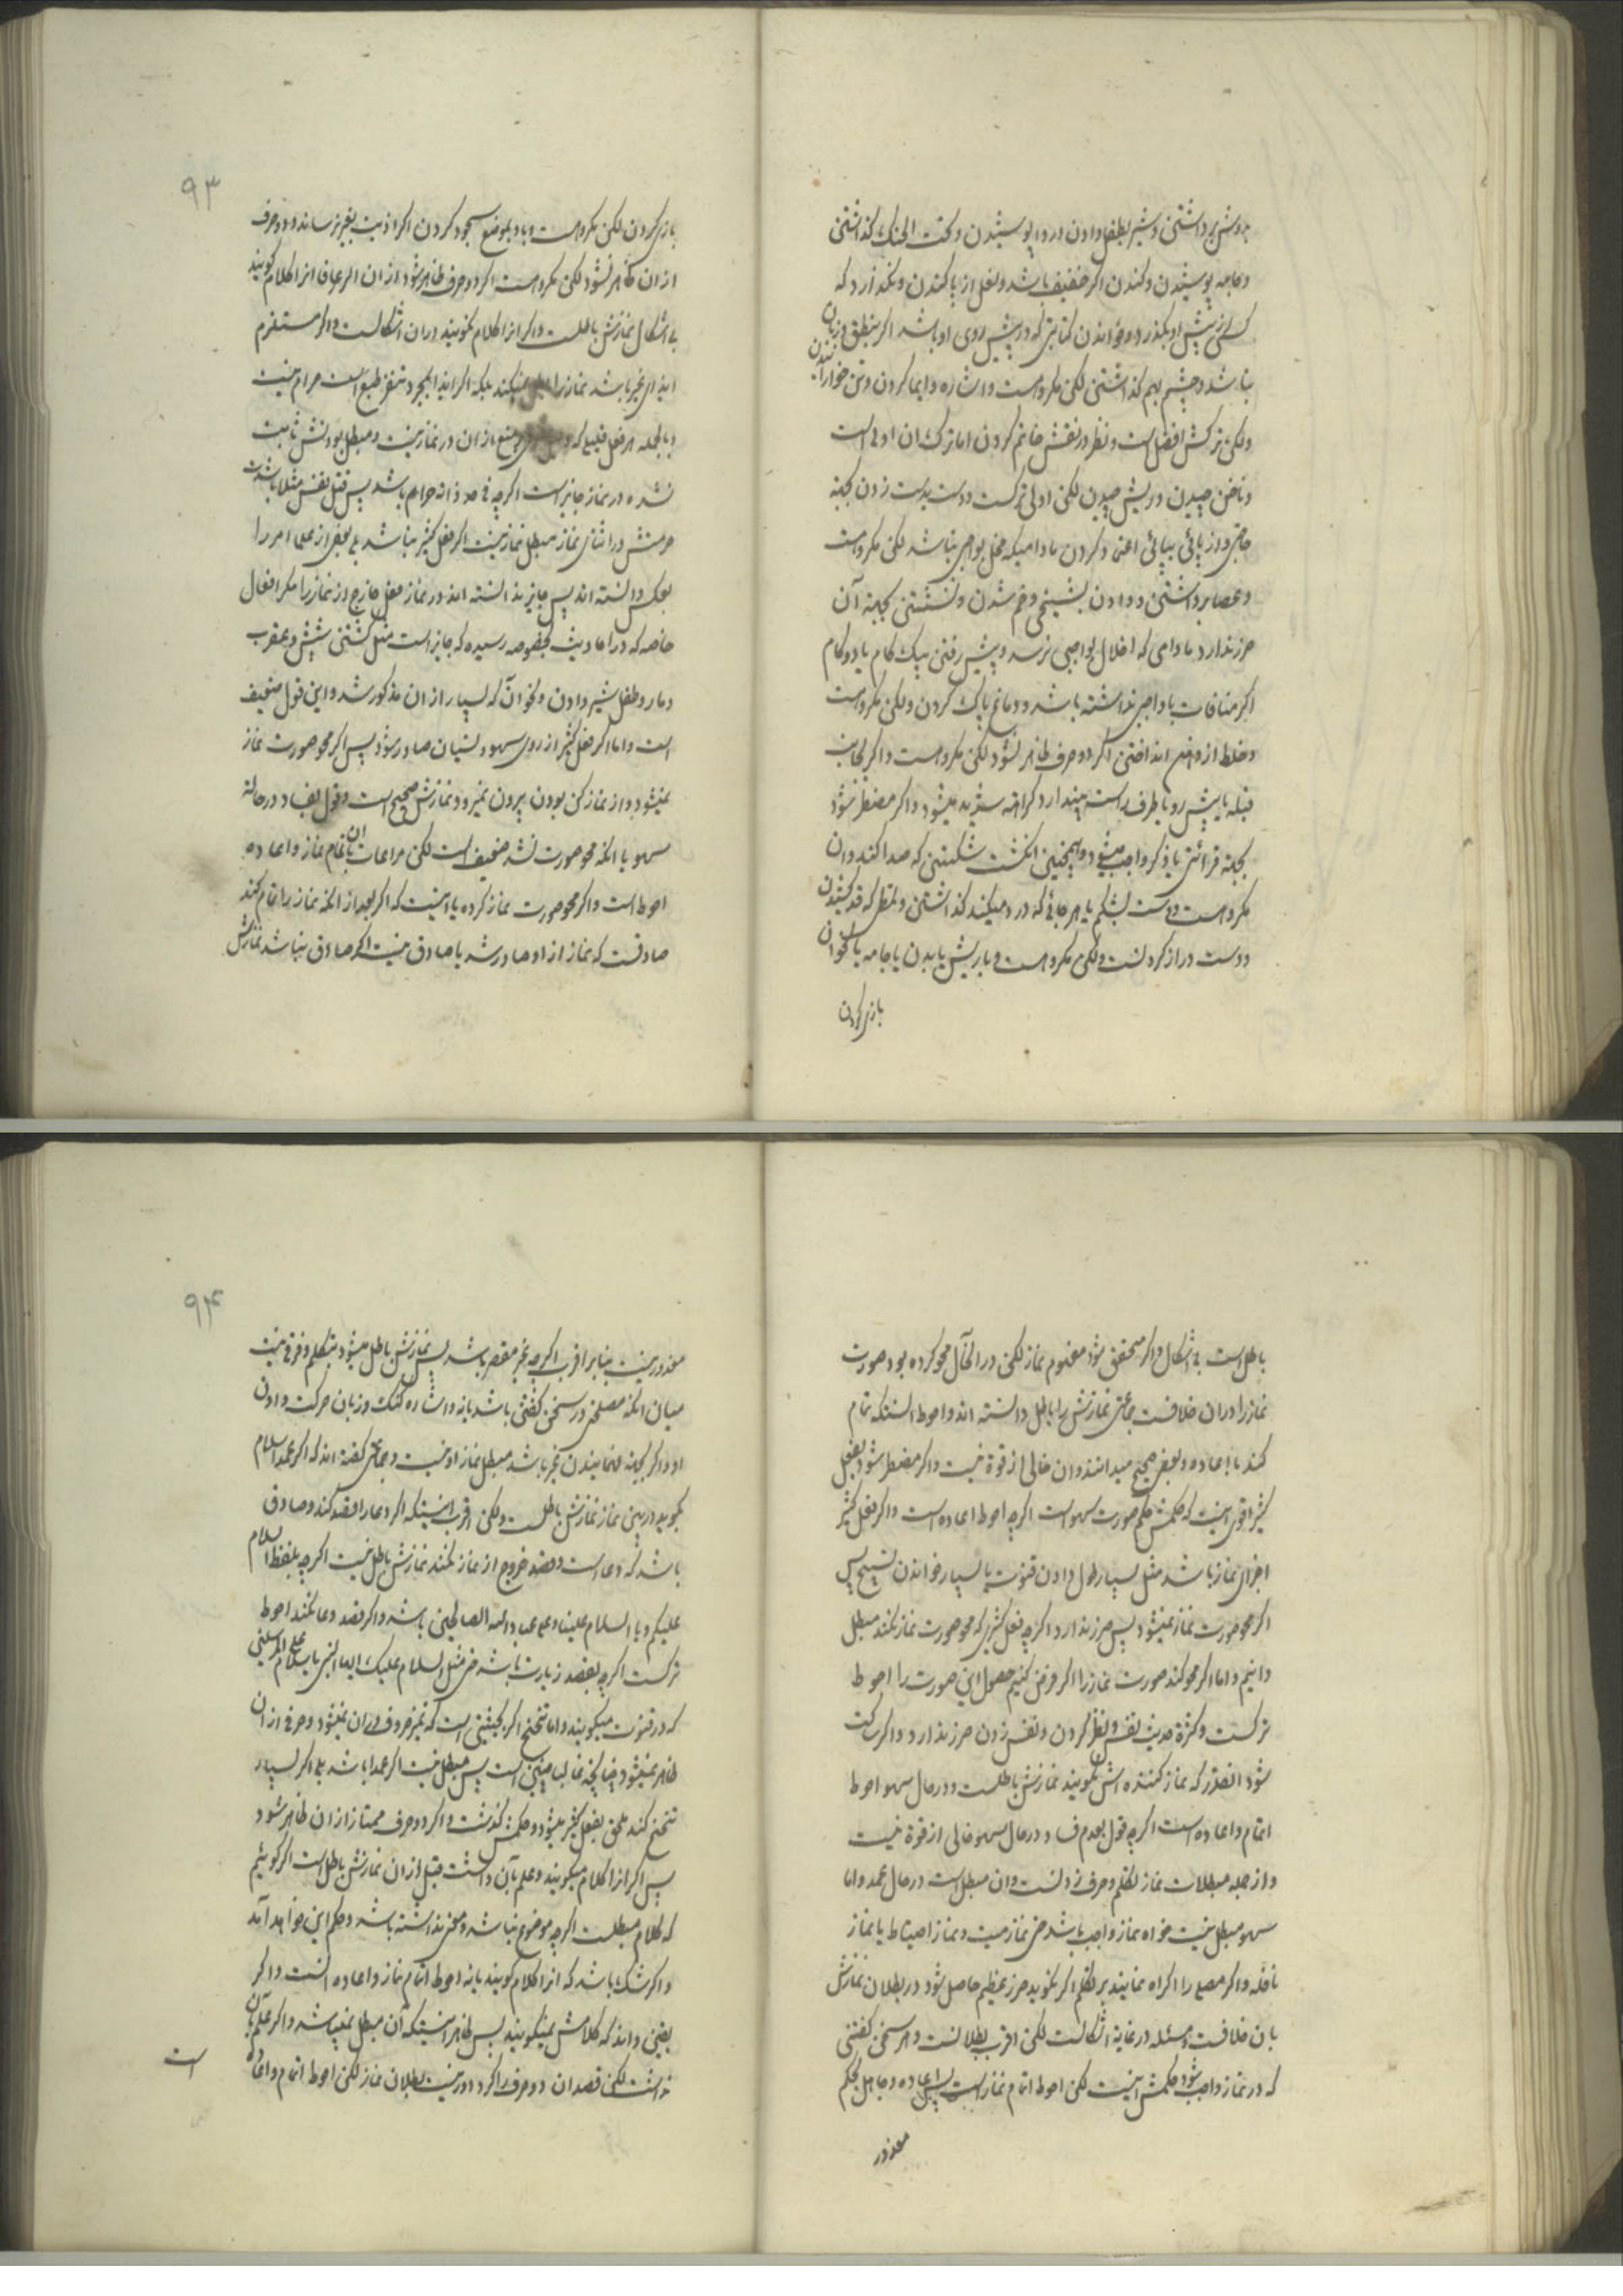 بدوش برداشتن و شیر بطفل دادن و ردا پوشیدن و تحت الحنک گذاشتن
و جامه پوشیدن و کندن اگر خفیف باشد و نعل از پا کندن و نگذارد که
کسی از پیش او بگذرد و خواندن کتابتی که در پیش روی او باشد اگر بنطق و زبان
نباشد و چشم بهم گذاشتن لکن مکروهست و اشاره و ایما کردن و تن خواراندن
ولکن ترکش افضلست و نظر در نقش خاتم کردن اما ترک ان اولی است
و ناخن چیدن و ریش چیدن لکن اولی ترکست و دست بدست زدن بجهة
حاجتی و از پائی بپائی اعتماد کردن مادامیکه مخل بواجبی نباشد لکن مکروهست
و عصا برداشتن و دادن بشیخی و خم شدن و نشستن بجهة آن
ضرر ندارد مادامی که اخلال بواجبی نرسد و پیش رفتن بیک کام یا دو کام
اگر منافات با واجبی نداشته باشد و دماغ پاک کردن ولکن مکروهست
و خلط از دهن انداختن اگر دو حرف ظاهر نشود لکن مکروهست و اگر بجانب
قبله یا پیش رو یا طرف راست بیندازد کراهته شدید میشود و اگر مضطر شود
بجهة قرائتی یا ذکر واجب میشود و همچنین انگشت شکستن که صدا کند و ان
مکروهست و دست بشکم یا هر جائی که درد میکند گذاشتن و تمطی که قد کشیدن
و دست دراز کردنست ولکن مکروهست و با ریش یا بدن یا جامه یا نحو ان
بازی کردن
۹۳
بازی کردن لکن مکروهست و باد بموضع سجود کردن اگر اذیت بغیر نرساند و دو حرف
از ان ظاهر نشود لکن مکروهست اگر دو حرف ظاهر شود از ان اگر عرفا انرا کلام کویند
بی اشکال نمازش باطلست و اگر انرا کلام نکویند در ان اشکالست و اگر مستلزم
ایذای غیر باشد نماز را باطل نمیکند بلکه اگر ایذا بمجرد تنفر طبع است حرام نیست
و بالجمله هر فعل قلیلی که منع از ان در نماز نیست و مبطل بودنش ثابت
نشده در نماز جایز است اگرچه فی حد ذاته حرام باشد پس قتل نفس مثلا باشدت
حرمتش در اثنای نماز مبطل نماز نیست اگر فعل کثیر نباشد بلی بعضی از علما امر را
بعکس دانسته اند پس جایز ندانسته اند در نماز فعل خارج از نماز را مگر افعال
خاصه که در احادیث بخصوصه رسیده که جایز است مثل کشتن شپش و عقرب
و مار و طفل شیر دادن و نحو ان که بسیار از ان مذکور شد و این قول ضعیف
است و اما اگر فعل کثیر از روی سهو و نسیان صادر شود پس اگر محو صورت نماز
نمیشود و از نماز کن بودن بیرون نمیرود نمازش صحیح است و قول بفساد در حالة
سهو با انکه محو صورت نشد ضعیف است لکن مراعات ان باتمام نماز و اعاده
احوط است و اگر محو صورت نماز کرده یا نیست که اگر بعد از انکه نماز را تمام کند
صادقست که نماز از او صادر شد یا صادق نیست اگر صادق نباشد نمازش
باطل است بی اشکال و اگر متحقق شود مفهوم نماز لکن در انحال محو کرده بود صورت
نماز را در ان خلافست جماعتی نمازش را باطل دانسته اند و احوط انستکه تمام
کند با اعاده و بعضی صحیح میدانند و ان خالی از قوة نیست و اگر مضطر شود بفعل
کثیر اقوی اینست که حکمش حکم صورت سهو است اگرچه احوط اعاده است و اگر فعل کثیر
اجزای نماز باشد مثل بسیار طول دادن قنوت یا بسیار خواندن تسبیح پس
اگر محو صورت نماز نمیشود پس ضرر ندارد اگرچه فعل کثیری که محو صورت نماز نکند مبطل
دانیم و اما اگر محو کند صورت نماز را اگر فرض کنیم حصول این صورت را احوط
ترکست و کثرة حدیث نفس و نظر کردن و نفس زدن ضرر ندارد و اگر ساکت
شود انقدر که نماز کننده اش نگویند نمازش باطلست و در حال سهو احوط
اتمام و اعاده است اگرچه قول بعدم فساد در حال سهو خالی از قوة نیست
و از جمله مبطلات نماز تکلم و حرف زدنست و ان مبطل است در حال عمد و اما
سهو مبطل نیست خواه نماز واجب باشد حتی نماز میت و نماز احتیاط یا نماز
نافله و اگر مصلی را اکراه نمایند بر تکلم اگر نگوید ضرر عظیم حاصل شود در بطلان نمازش
بان خلافست و مسئله در غایة اشکالست لکن اقرب بطلانست و هر سخن گفتنی
که در نماز واجب شود حکمش اینست لکن احوط اتمام نماز است پس اعاده و جاهل بحکم
معذور
۹۴
معذور نیست بنابر اقرب اگرچه غیر مقصر باشد پس نمازش باطل میشود بتکلم و فرقی نیست
میان انکه مصلحتی در سخن گفتنی باشد یا نه و اشاره گنگ و زبان حرکت دادن
او و اگر بجهة فهمانیدن غیر باشد مبطل نماز او نیست و جماعتی گفته اند که اگر عمدا سلام
بگوید در بین نماز نمازش باطلست ولکن اقرب اینستکه اگر دعا را قصد کند و صادق
باشد که دعاست و قصد خروج از نماز نکند نمازش باطل نیست اگرچه بلفظ السلام
علیکم و یا السلام علینا و علی عباد الله الصالحین باشد و اگر قصد دعا نکند احوط
ترکست اگرچه بقصد زیارت باشد حتی مثل السلام علیک ایها النبی یا سلام علی المرسلین
که در قنوت میگویند و اما تنحنح اگر بحیثیتی است که تمیز حروف از ان نمیشود و حرفی از ان
ظاهر نمیشود چنانچه غالبا چنین است پس مبطل نیست اگر عمدا باشد بلی اگر بسیار
تنحنح کند ملحق بفعل کثیر میشود و حکمش گذشت و اگر دو حرف ممتاز از ان ظاهر شود
پس اگر انرا کلام میگویند و علم بان داشت قبل از ان نمازش باطل است اگر گوئیم
که کلام مبطلست اگرچه موضوع نباشد و معنی نداشته باشد و حکم این خواهد آمد
و اگر شک باشد که انرا کلام گویند یا نه احوط اتمام نماز و اعاده انست و اگر
یقین داند که کلامش نمیگویند پس ظاهر اینستکه آن مبطل نمیباشد و اگر علم بان
نداشت لکن قصد ان دو حرف را کرد دور نیست بطلان نماز لکن احوط اتمام و اعاده
است